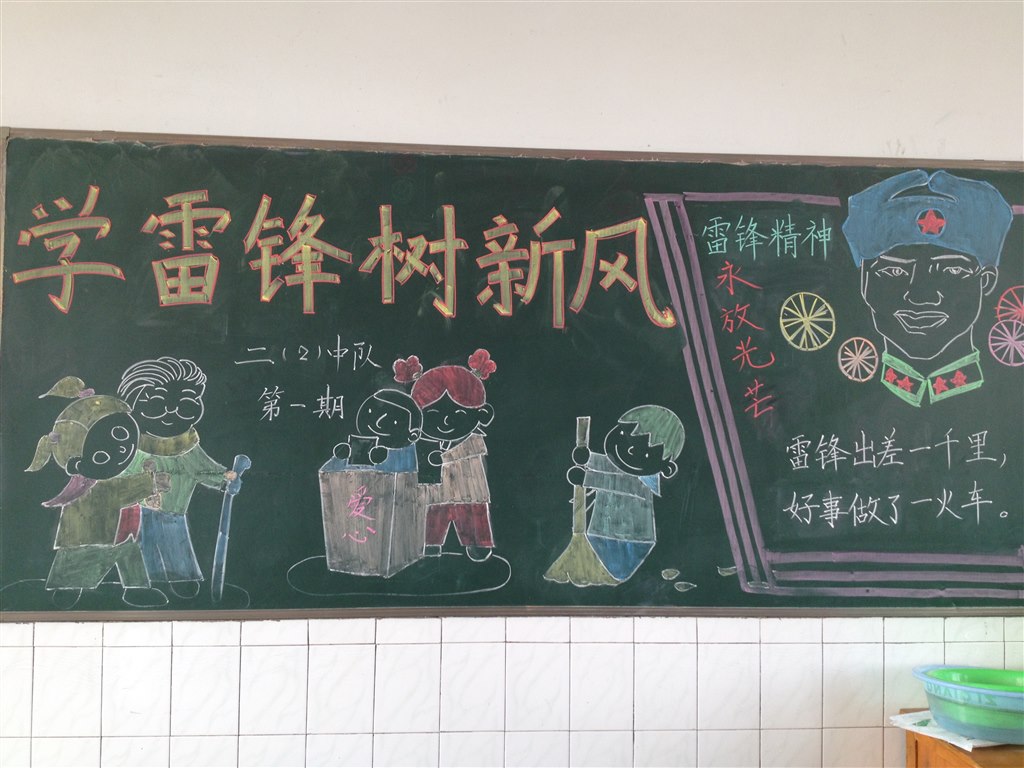 学雷锋树新风
二(2)中队
第一期
爱心
雷锋精神
永放光芒
雷锋出差一千里，
好事做了一火车。